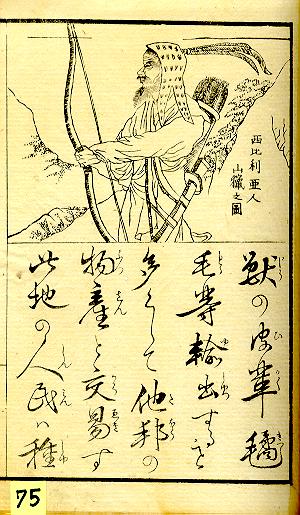 西比利亜人
山獵之圖
獣の皮革
毛等輸出すること
多くして他邦の
物産と交易す
此地の人民ハ種
75